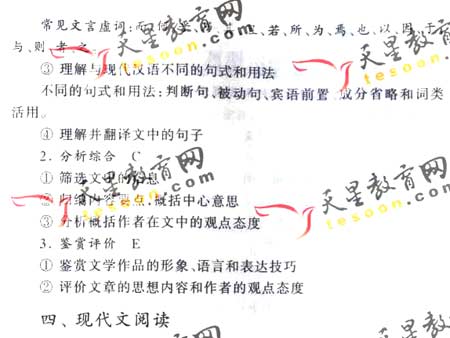 常见文言虚词：而、何、、若、所、为、焉、也、以、因、于、
与、则、者、之
③ 理解与现代汉语不同的句式和用法
不同的句式和用法：判断句、被动句、宾语前置、成分省略和词类
活用。
④ 理解并翻译文中的句子
2. 分析综合 C
① 筛选文中的信息
② 归纳内容要点，概括中心意思
③ 分析概括作者在文中的观点态度
3. 鉴赏评价 E
① 鉴赏文学作品的形象、语言和表达技巧
② 评价文章的思想内容和作者的观点态度
四、现代文阅读
天星教育网
tesoon.com
天星教育网
tesoon.com
天星教育网
tesoon.com
天星教育网
tesoon.com